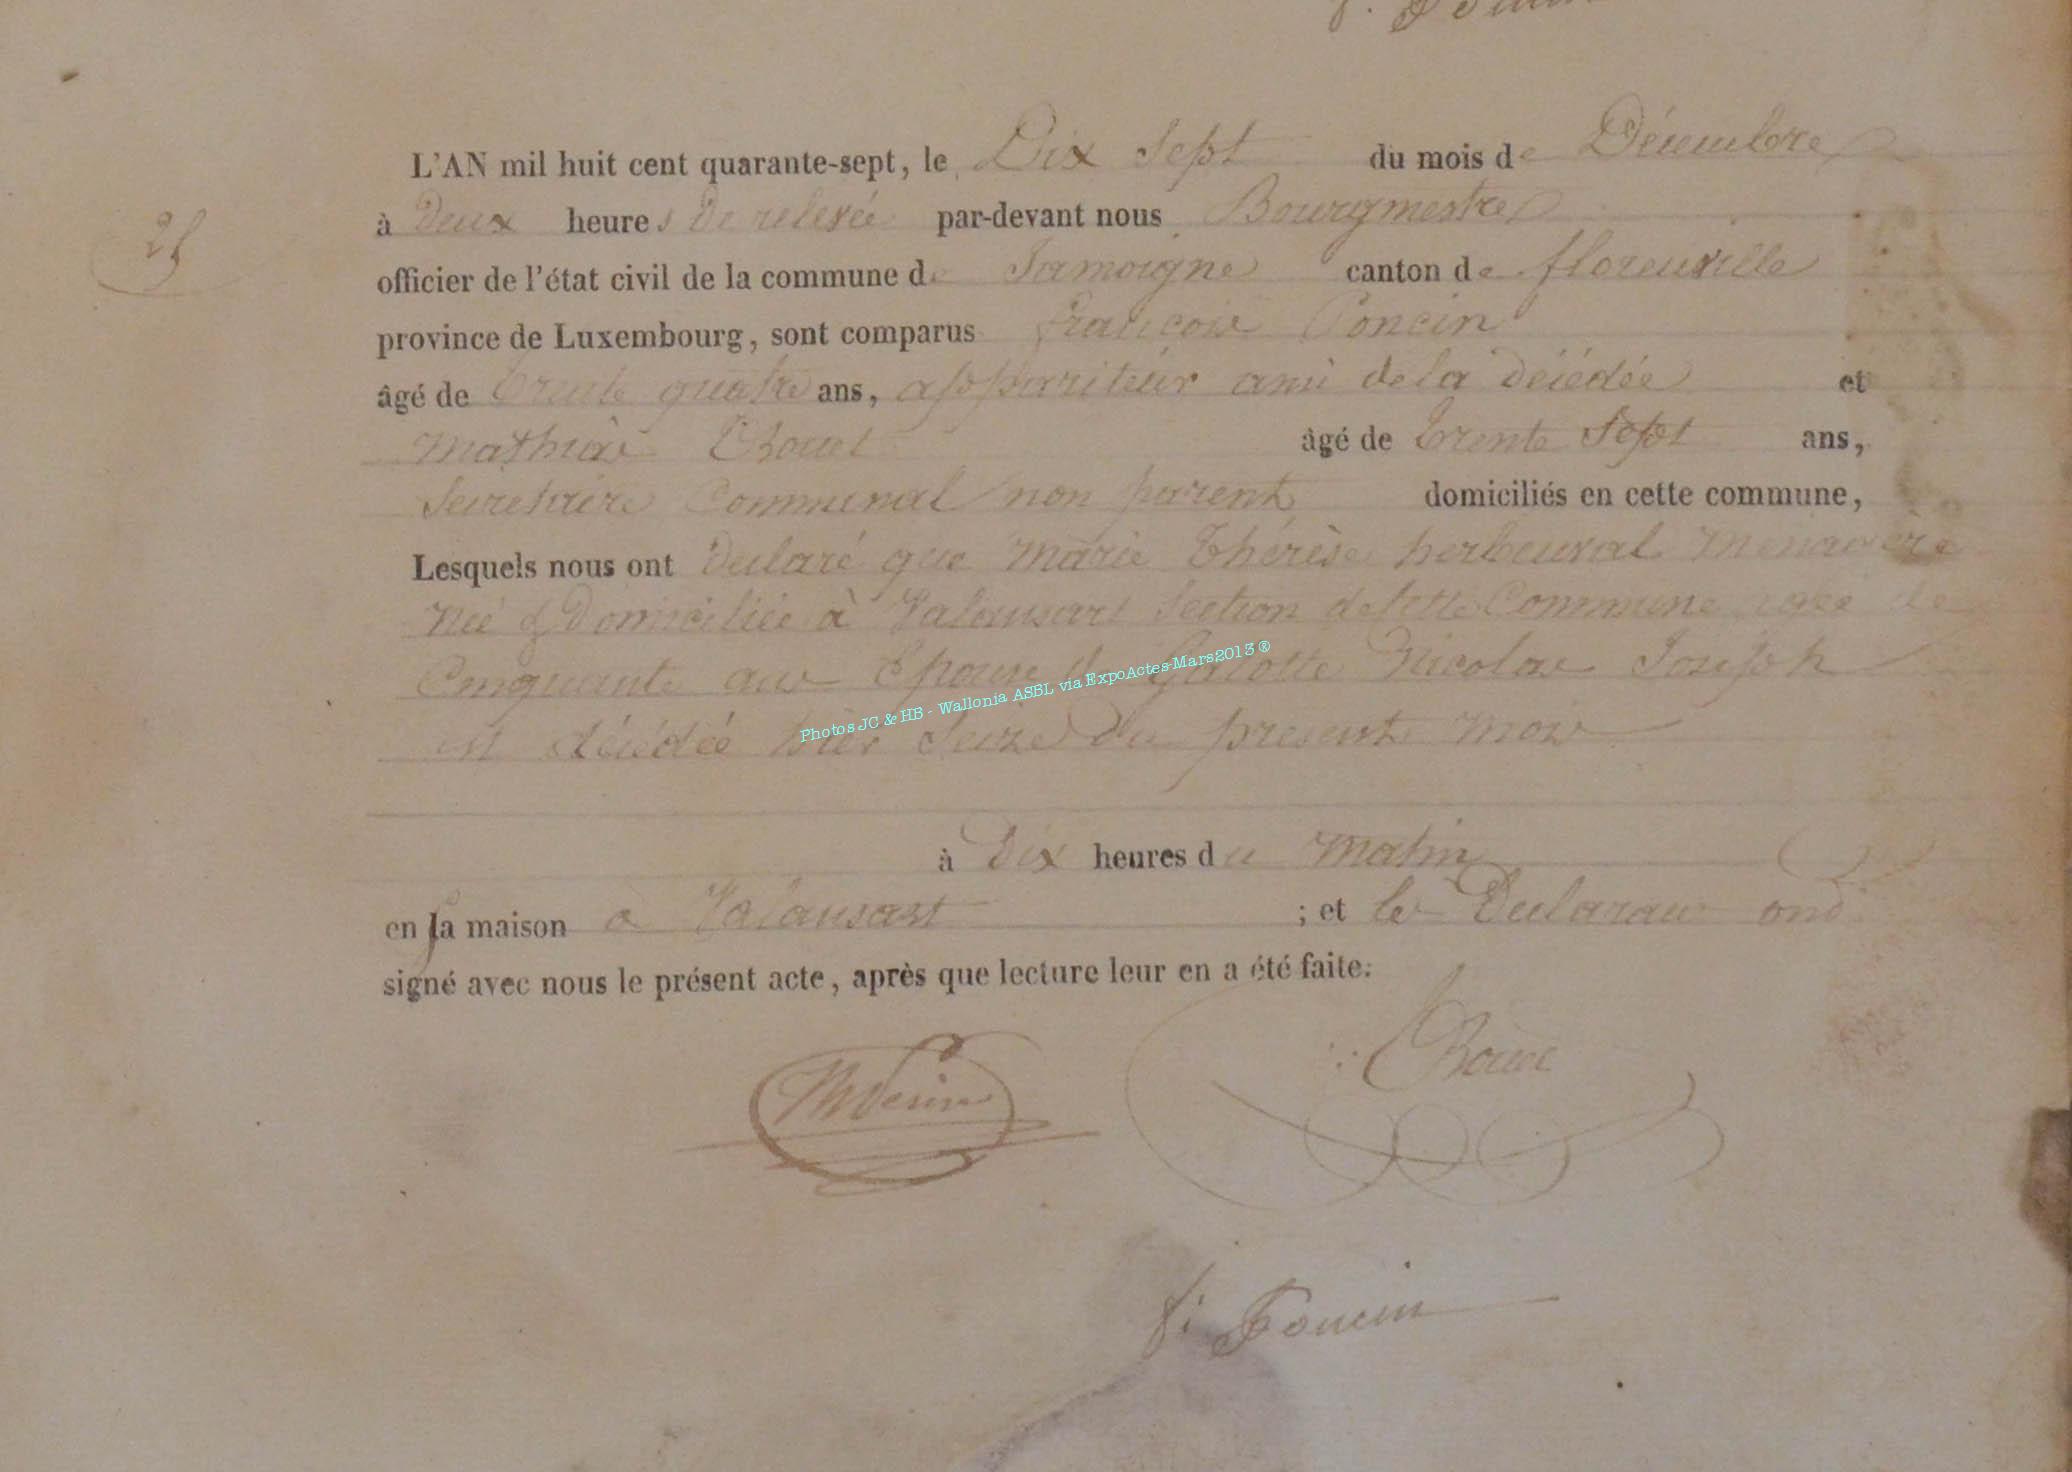 25
L'AN mil huit cent quarante-sept, le Dix Sept du mois de Décembre
à Deux heures De relevée par-devant nous Bourgmestre
officier de l'état civil de la commune de Jamoigne canton de florenville
province de Luxembourg, sont comparus françois Poncin
âgé de trente quatre ans, appariteur ami de la décédée et
Mathias Chouet âgé de trente Sept ans,
Secretaire Communal non parent domiciliés en cette commune,
Lesquels nous ont Declaré que Marie thérèse herbeuval Menagère
Née & Domiciliée à Valansart Section de cette Commune agée de
Cinquante ans Epouse de Nicolas Joseph
est décédée hier Seize Du present mois
à Dix heures du Matin
en sa maison à Valansart ; et les Declarans ont
signé avec nous le présent acte, après que lecture leur en a été faite.
Chouet
f: Poncin
Photos JC & HB - Wallonia ASBL via ExpoActes-Mars2013 ®